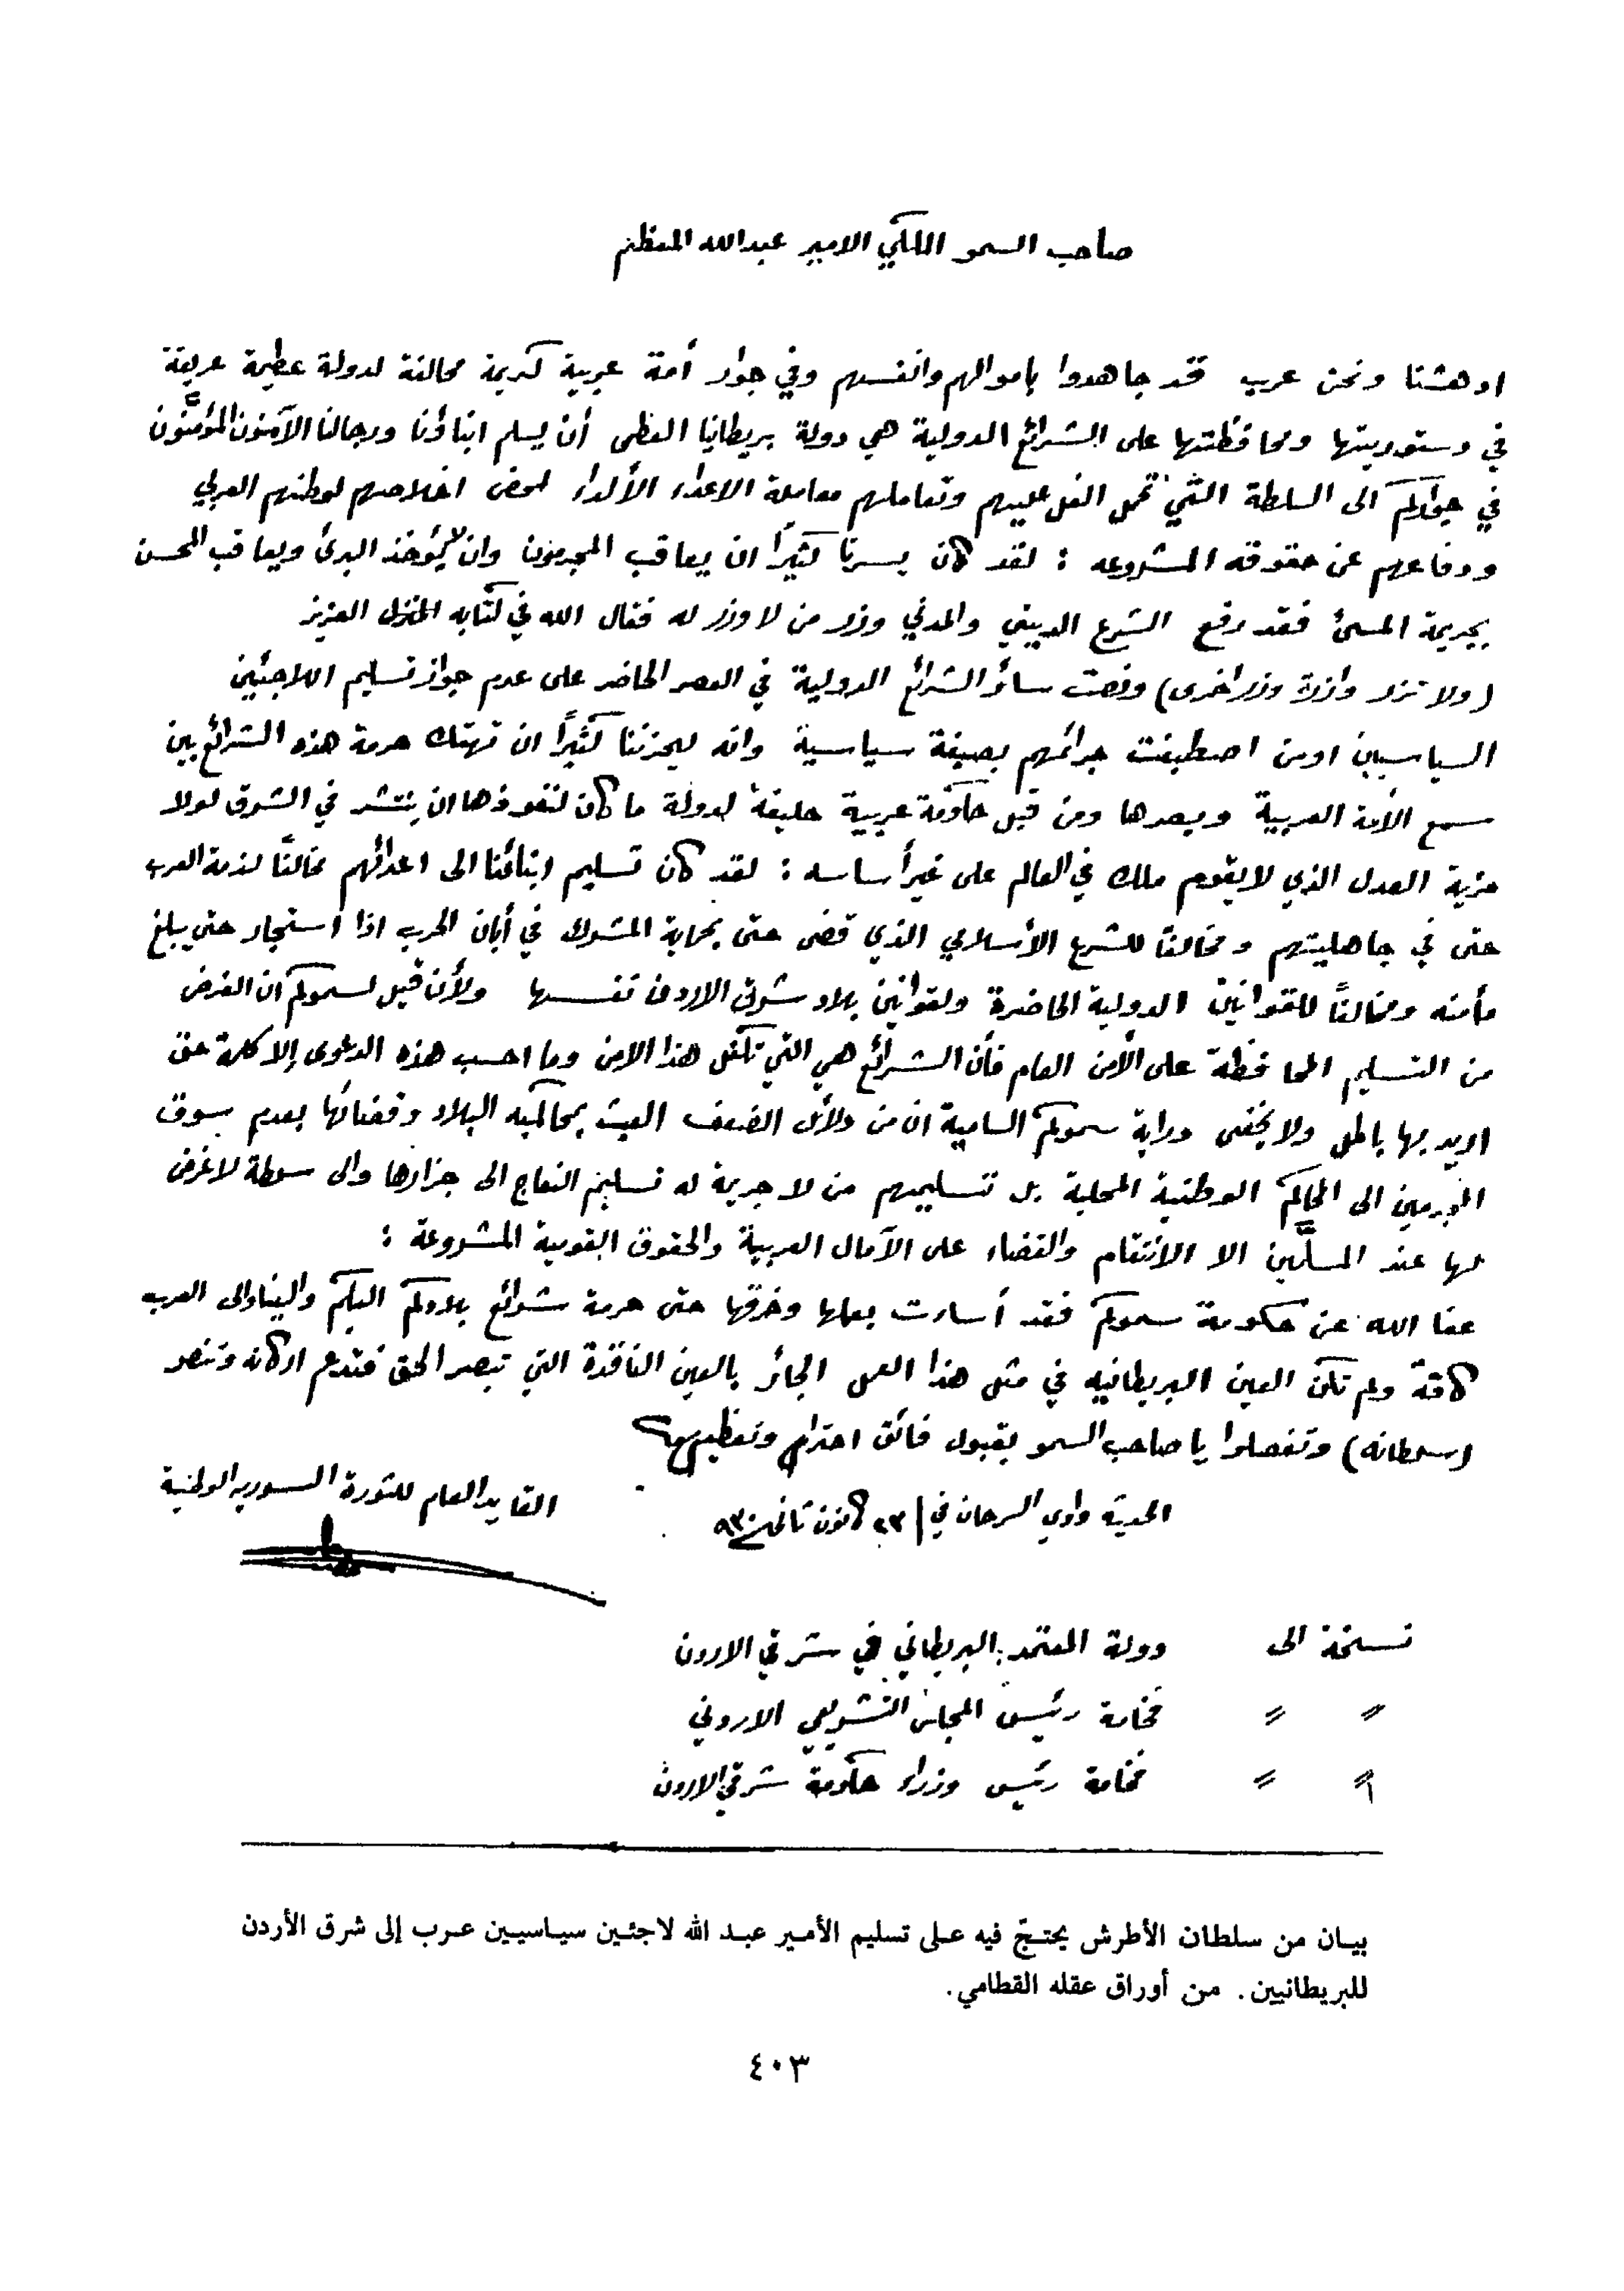 صاحب السمو الملكي الامير عبدالله المعظم
ادهشنا ونحن عرب قد جاهدوا باموالهم وانفسهم وفي جوار أمة عربية كريمة محالفة لدولة عظيمة عريقة
في دستوريتها ومحافظتها على الشرائع الدولية هي دولة بريطانيا العظمى أن يسلم ابناؤنا ورجالنا الآمنون المؤمَّنون
في جواركم الى السلطة التي تحمل الغل عليهم وتعاملهم معاملة الاعداء الألداء لمحض اخلاصهم لوطنهم العربي
ودفاعهم عن حقوقه المشروعه : لقد كان يسرنا كثيراً ان يعاقب المجرمون وان لا يؤخذ البرئ ويعاقب المحسن
بجريمة المسئ فقد رفع الشرع الديني والمدني وزر من لا وزر له فقال الله في كتابه المنزل العزيز
(ولا تزر وازرة وزر اخرى) ونصت سائر الشرائع الدولية في العصر الحاضر على عدم جواز تسليم اللاجئين
السياسيين اومن اصطبغت جرائمهم بصبغة سياسية وانه ليحزننا كثيراً ان تهتك حرمة هذه الشرائع بين
سمع الأمة العربية وبصرها ومن قبل حكومة عربية حليفة لدولة ما كان لنفوذها ان ينتشر في الشرق لولا
مزية العدل الذي لا يقوم ملك في العالم على غير أساسه : لقد كان تسليم ابنائنا الى اعدائهم مخالفاً لذمة العرب
حتى في جاهليتهم ومخالفاً للشرع الأسلامي الذي قضى حتى بحماية المشرك في أبان الحرب اذا استجار حتى يبلغ
مأمنه ومخالفاً للقوانين الدولية الحاضرة ولقوانين بلاد شرقي الاردن نفسها ولأن قيل لسموكم ان الغرض
من التسليم المحافظة على الأمن العام فأن الشرائع هي التي تكفل هذا الامن وما احسب هذه الدعوى إلا كلمة حق
اريد بها باطل ولا يخفى دراية سموكم السامية ان من دلائل الضعف العبث بمحاكم البلاد وقضائها بعدم سوق
المجرمين الى المحاكم الوطنية المحلية بل تسليمهم من لا جريمة له تسليم النعاج الى جزارها والى سلطة لا غرض
لها عند المسلَّمين الا الانتقام والقضاء على الآمال العربية والحقوق القومية المشروعة :
عفا الله عن حكومة سموكم فقد أساءت بعملها وخرقها حتى حرمة شرائع بلادكم اليكم والينا والى العرب
كافة ولم تكن العين البريطانيه في مثل هذا العمل الجائر بالعين الناقدة التي تبصر الحق فتدعم اركانه وتنصر
(سلطانه) وتفضلوا يا صاحب السمو بقبول فائق احترامي وتعظيمي
الحديثة وادي السرحان في / ٢٣ كانون ثاني سنة ٩٣٠
القايد العام للثورة السورية الوطنية
نسخة الى دولة المعتمد البريطاني في شرقي الاردن
〃 〃 فخامة رئيس المجلس التشريعي الاردني
〃 〃 فخامة رئيس وزراء حكومة شرقي الاردن
بيـان من سلطان الأطرش يحتـجّ فيه عـلى تسليم الأمـير عبـد الله لاجئـين سيـاسيـين عـرب إلى شرق الأردن
للبريطانيين. من أوراق عقله القطامي.
٤٠٣